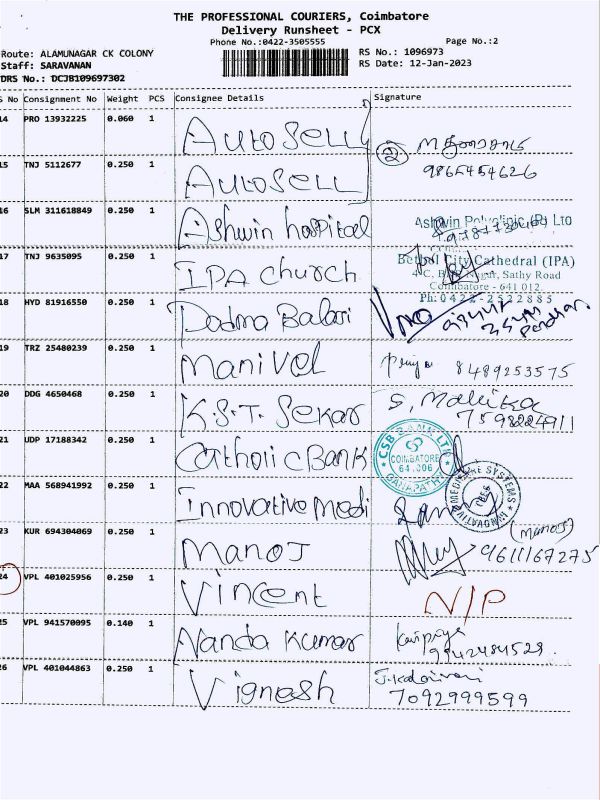 THE PROFESSIONAL COURIERS, Coimbatore
Delivery Runsheet - PCX
Phone No.:0422-3505555 Page No.:2
Route: ALAMUNAGAR CK COLONY RS No.: 1096973
Staff: SARAVANAN RS Date: 12-Jan-2023
DRS No.: DCJB109697302
S No Consignment No Weight PCS Consignee Details Signature
14 PRO 13932225 0.060 1 Autosell
9865454626
15 TNJ 5112677 0.250 1 Autosell
16 SLM 311618849 0.250 1 Ashwin hospital Ashwin Polyclinic (P) Ltd
17 TNJ 9635095 0.250 1 IPA church Bethel City Cathedral (IPA)
Nagar, Sathy Road
Coimbatore - 641 012.
Ph: 0422-2522885
18 HYD 81916550 0.250 1 Padma Balaji
19 TRZ 25480239 0.250 1 Manivel Priya 8489253575
20 DDG 4650468 0.250 1 K.S.T. Sekar S. Mallika
7598224911
21 UDP 17188342 0.250 1 Catholic Bank CSB BANK LTD COIMBATORE 641006 GANAPATHY
22 MAA 568941992 0.250 1 Innovative Medi INNOVATIVE MEDICARE SYSTEMS
23 KUR 694304069 0.250 1 Manoj (Manoj)
9611167275
24 VPL 401025956 0.250 1 Vincent N/P
25 VPL 941570095 0.140 1 Nanda Kumar
9942484529
26 VPL 401044863 0.250 1 Vignesh J. Kalaivani
7092999599